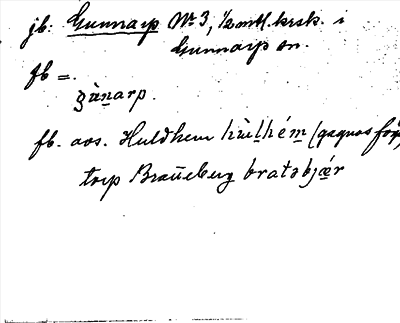 jb: Gunnarp Nr 3, 1/2 mtl. krsk. i
Gunnarp sn.
fb =.
gùnarp.
fb. avs. Huldhem hùlhém (gagnas för)
torp Bratteberg bratəbjær